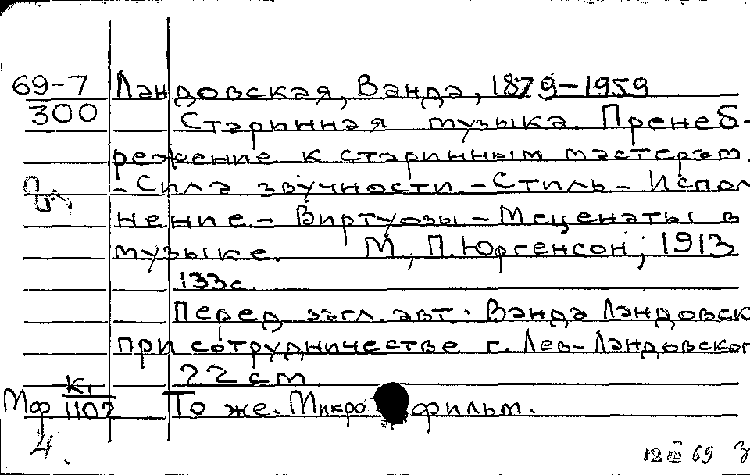 69-7 Ландовская, Ванда, 1879-1959
300 Старинная музыка. Пренеб-
режение к старинным мастерам.
- Сила звучности - Стиль - Испол
нение. - Виртуозы - Меценаты в
музыке. М., П. Юргенсон, 1913
133с.
Перед загл. авт. Ванда Ландовск
при сотрудничестве г. Лев-Ландовског
22 cm
Мф К1 1102 То же. Микрофильм.
4.
12 III 69